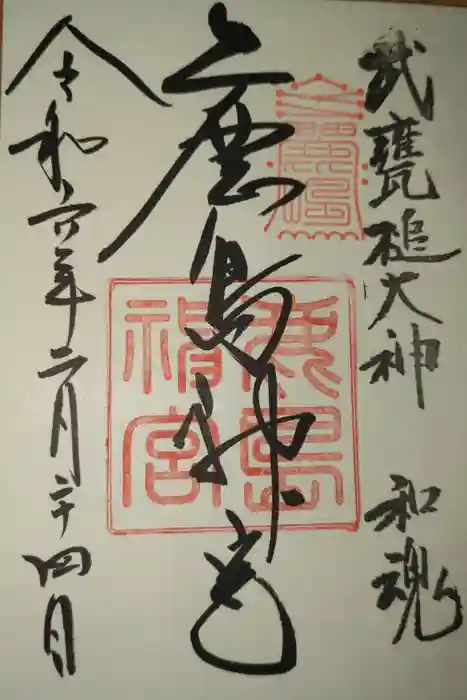 武甕槌大神 和魂
鹿島神宮
令和六年二月二十四日
鹿島
神宮